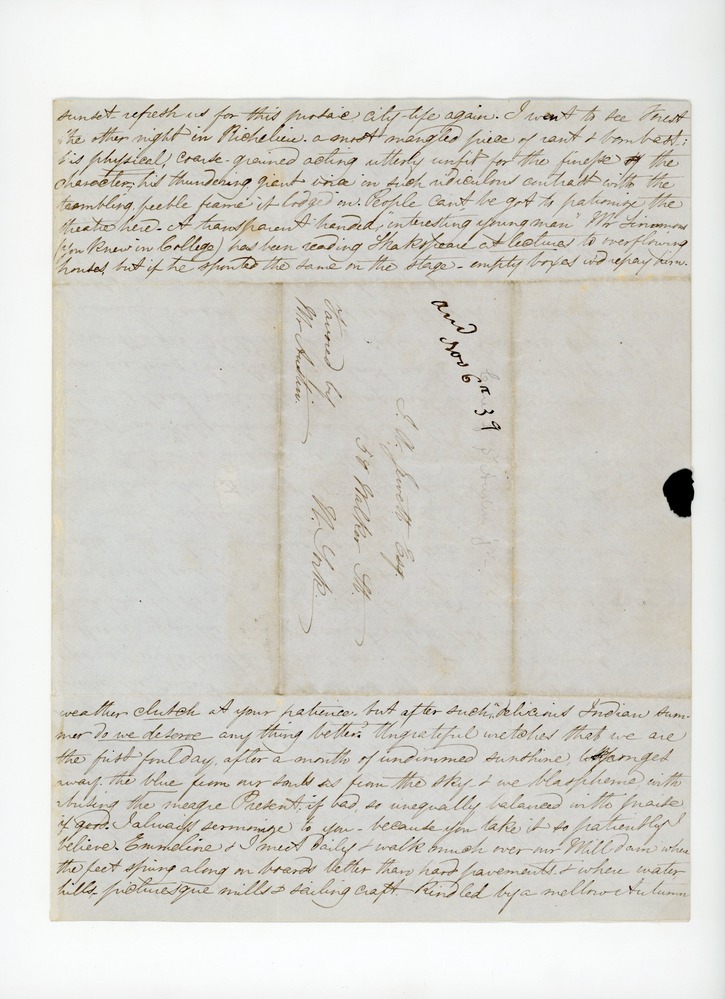 sunset refresh us for this prosaic city-life again. I went to see Forest
the other night in Richelieu. a most mangled piece of rant & bombast;
his physical, coarse-grained acting utterly unfit for the finesse of the
character, his thundering giant voice in such ridiculous contrast with the
trembling, feeble frame it lodged in. People cant be got to patronise the
theatre here. A transparent handed, "interesting young man" Mr Simmons
(you knew in College) has been reading Shakspeare at lectures to overflowing
houses, but if he spouted the same on the stage - empty boxes wd repay him.
Favored by
Mr Austin.
J. W. Jewett Esq
58 Walker St.
N. York.
and
Nov 6th 39
weather clutch at your patience. but after such "delicious Indian sum-
mer do we deserve any thing better? Ungrateful wretches that we are
the first foul day, after a month of undimmed sunshine, sponges
away the blue from our souls as from the sky & we blaspheme, with
abusing the meagre Present, if bad, so unequally balanced with praise
if good. I always sermonize to you - because you take it so patiently I
believe. Emmeline & I meet daily & walk much over our Mill dam where
the feet spring along on boards better than hard pavements & where water
hills, picturesque mills & sailing craft - kindled by a mellow Autumn